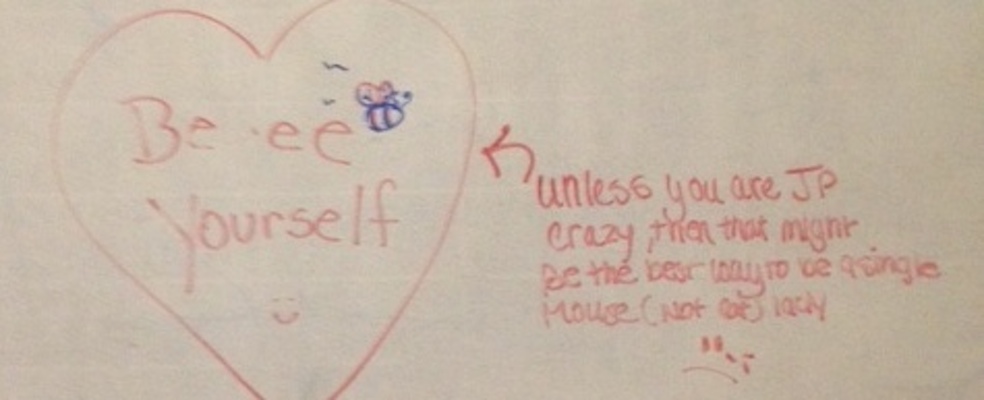 Be·ee
Yourself
unless you are JP
crazy, then that might
Be the best way to be a single
Mouse (Not cat) lady